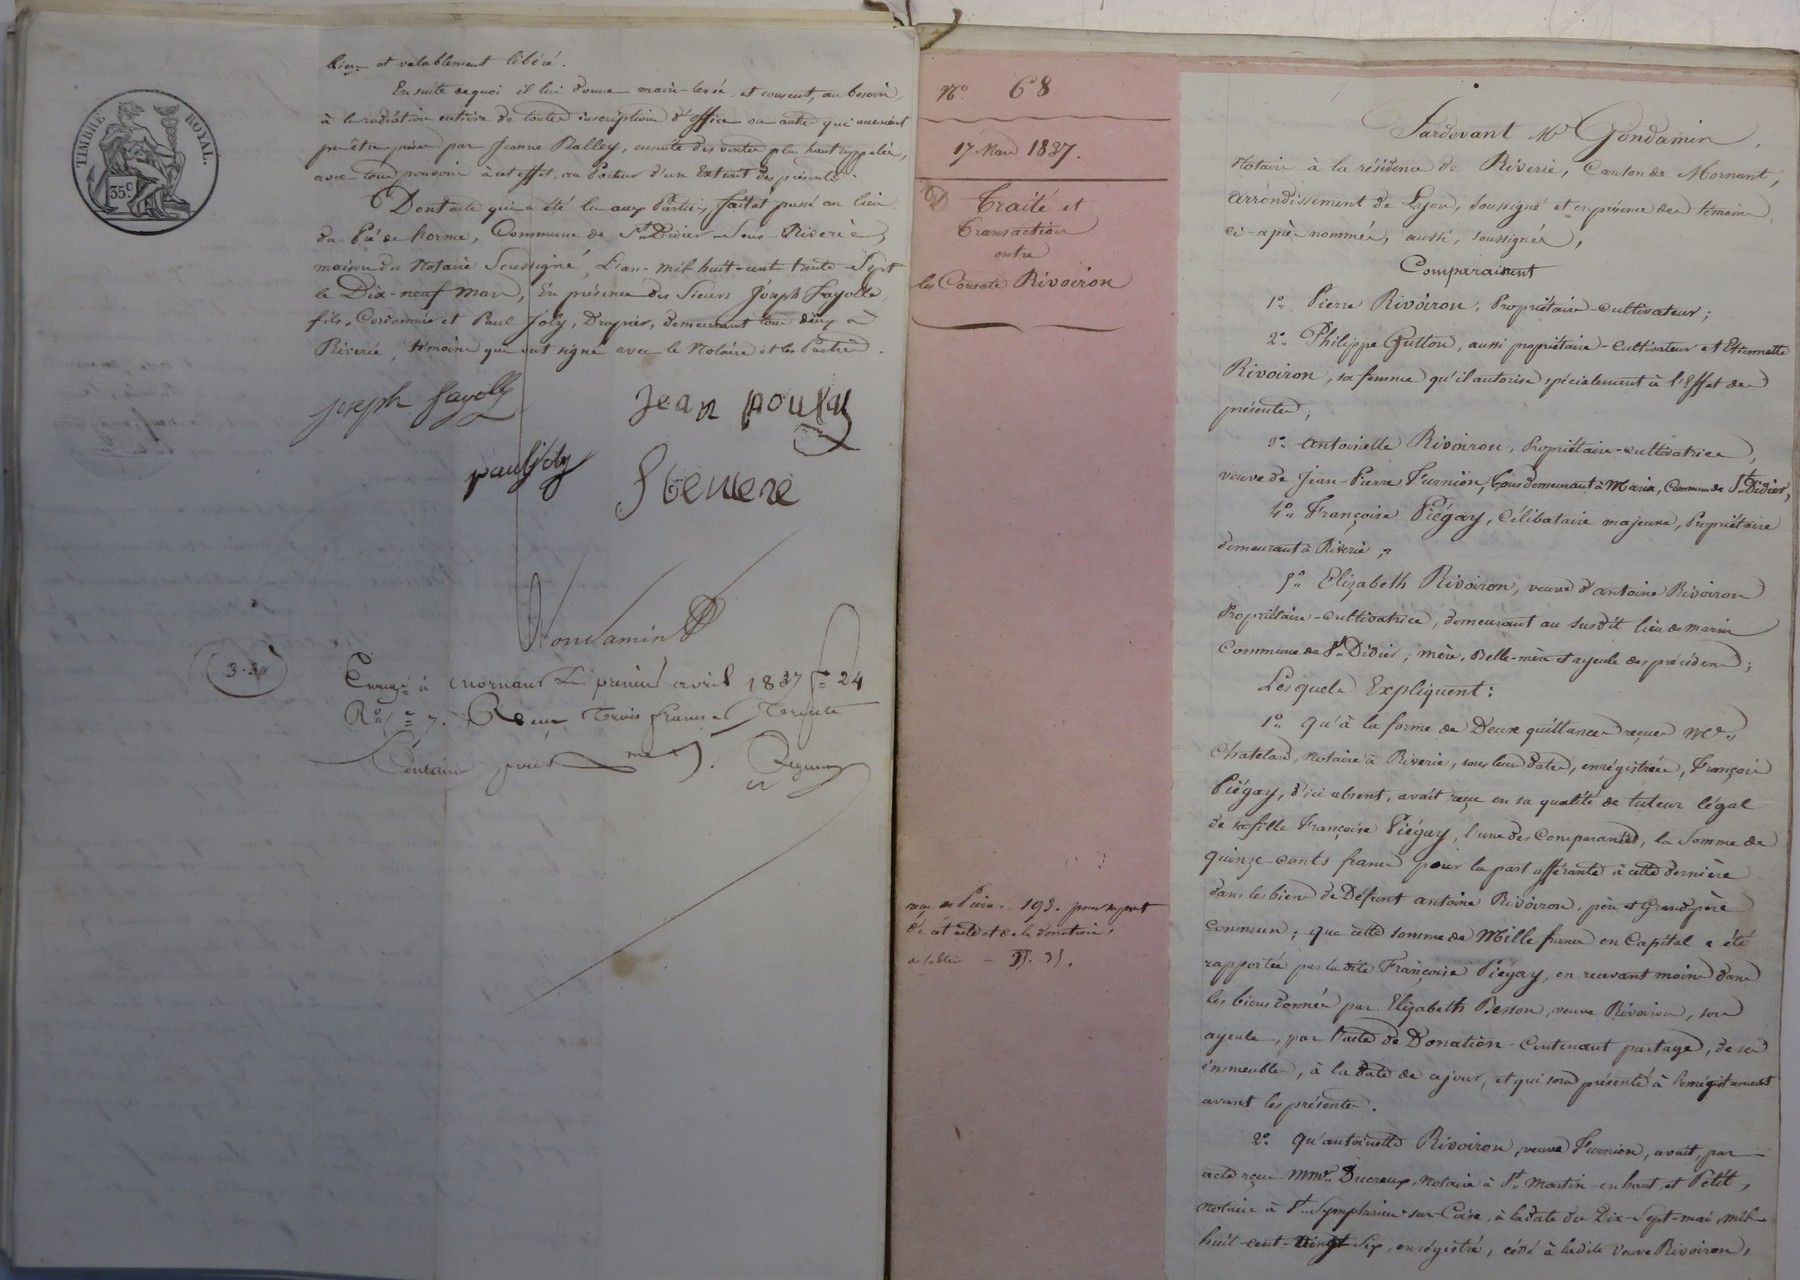 bien et valablement libéré.
Ensuite de quoi il lui donne main-levée et consent, au besoin,
à la radiation entière de toute inscription d'office ou autre qui auraient
pu être prise par Jeanne Balley, ensuite des ventes plus haut rappelées,
avec tout pouvoir à cet effet, au Porteur d'un Extrait des présentes.
TIMBRE ROYAL.
35 c
Dont acte qui a été lu aux Parties, fait et passé au lieu
du Pié de horme, Commune de St. Didier-Sous-Riverie,
maison du Notaire Soussigné, L'an mil huit-cent trente-Sept
le Dix-neuf Mars, En présence des Sieurs Joseph Fayolle,
fils, Cordonnier et Paul Joly, Drapier, demeurant tous deux à
Riverie, témoins qui ont signé avec le Notaire et les Parties.
joseph fayolle
Jean
paul joly
Gondamin
3.30
Enregé à Mornant Le premier avril 1837 fo 24
Ro Ce 7. Reçu Trois francs Trente
Centimes pour
No. 68
17 Mars 1837.
Traité et
Transaction
entre
les Consorts Rivoiron
193. pour
de cet acte et de la donation,
Pardevant Me. Gondamin,
Notaire à la résidence de Riverie, Canton de Mornant,
arrondissement de Lyon, soussigné et en présence des témoins,
ci-après nommés, aussi, soussignés,
Comparaissent
1o. Pierre Rivoiron, Propriétaire-cultivateur;
2o. Philippe Gutton, aussi propriétaire-Cultivateur et Etiennette
Rivoiron, sa femme qu'il autorise spécialement à l'Effet des
présentes;
3o. Antoinette Rivoiron, Propriétaire-cultivatrice,
veuve de Jean-Pierre Furnion, tous demeurant à Marin, Commune de St. Didier,
4o. Françoise Piégay, Célibataire majeure, Propriétaire
demeurant à Riverie,
5o. Elizabeth Rivoiron, veuve d'antoine Rivoiron
Propriétaire-cultivatrice, demeurant au susdit lieu de marin
Commune de St. Didier, mère, Belle-mère et ayeule des précédens;
Lesquels Expliquent:
1o. Qu'à la forme de Deux quittances reçues Me.
Chatelard, Notaire à Riverie, sous leurs dates, enregistrées, François
Piégay, d'ici absent, avait reçu en sa qualité de tuteur légal
de sa fille Françoise Piégay, l'une des Comparantes, la Somme de
quinze-cents francs pour la part afférante à cette dernière
dans les biens de Défunt antoine Rivoiron, père et Grand-père
Commun; que cette somme de Mille francs en Capital a été
rapportée par ladite Françoise Piégay, en recevant moins dans
les biens donnés par Elizabeth Besson, veuve Rivoiron, son
ayeule, par l'acte de Donation-Contenant partage, de ses
immeubles, à la date de ce jour, et qui sera présenté à l'enregistrement
avant les présentes.
2o. Qu'antoinette Rivoiron, veuve Furnion, avait, par
acte reçu MMes. Ducreux, notaire à St. Martin-en-haut, et Petit,
notaire à St. Symphorien-sur-Coise, à la date du Dix-Sept-mai mil
huit-cent-vingt-Six, enregistré, cédé à ladite Veuve Rivoiron,